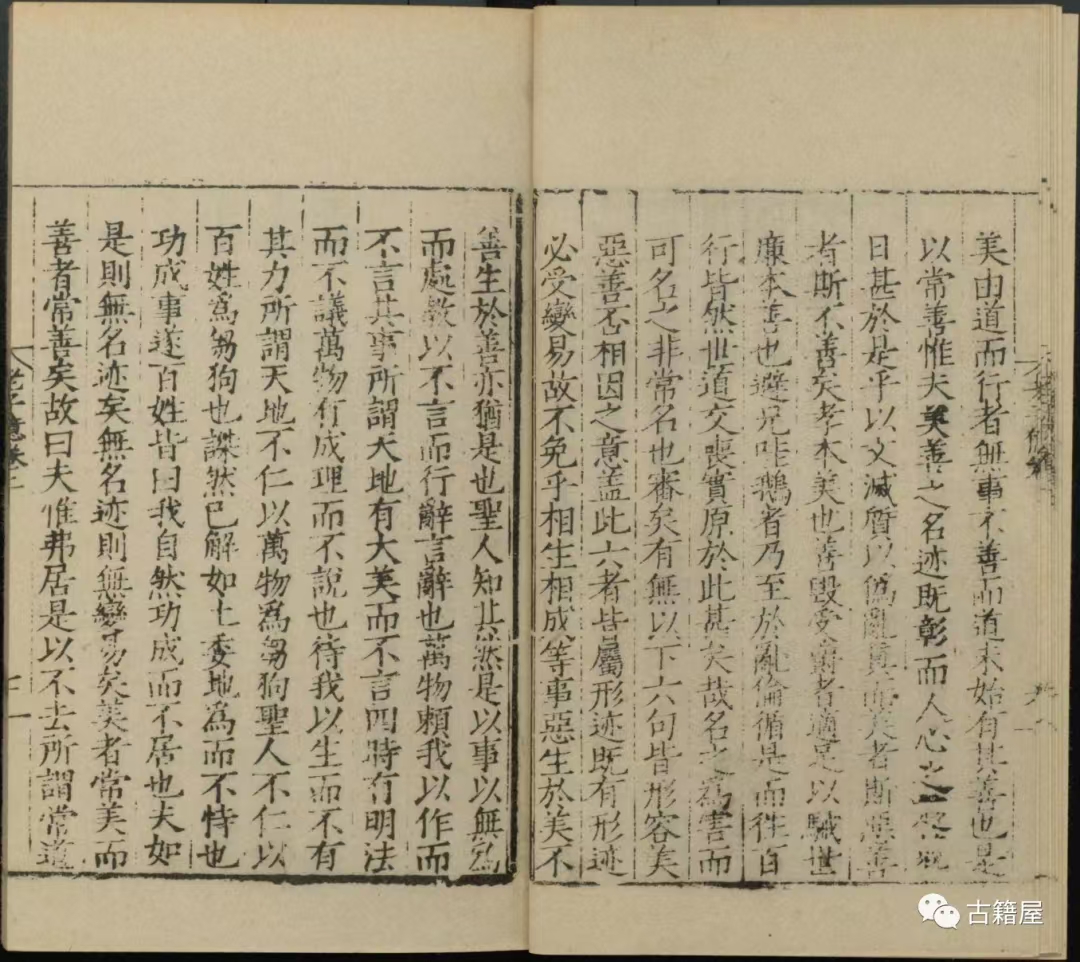 美由道而行者無事不善而道未始有其善也是
以常善惟夫美善之名迹既彰而人心之
日甚於是乎以文滅質以僞亂真而美者斯惡善
者斯不善矣孝本美也善毀受爵者適足以賊世
廉本善也避兄哇鵝者乃至於亂倫循是而往百
行皆然世道交喪實原於此甚矣哉名之爲害而
可名之非常名也審矣有無以下六句皆形容美
惡善否相因之意盖此六者皆屬形迹既有形迹
必受變易故不免乎相生相成等事惡生於美不
善生於善亦猶是也聖人知其然是以事以無爲
而處教以不言而行辭言辭也萬物賴我以作而
不言其事所謂天地有大美而不言四時有明法
而不議萬物有成理而不說也待我以生而不有
其力所謂天地不仁以萬物爲芻狗聖人不仁以
百姓爲芻狗也謋然已解如土委地爲而不恃也
功成事遂百姓皆曰我自然功成而不居也夫如
是則無名迹矣無名迹則無變易矣美者常美而
善者常善矣故曰夫惟弗居是以不去所謂常道
老子意卷上
古籍屋